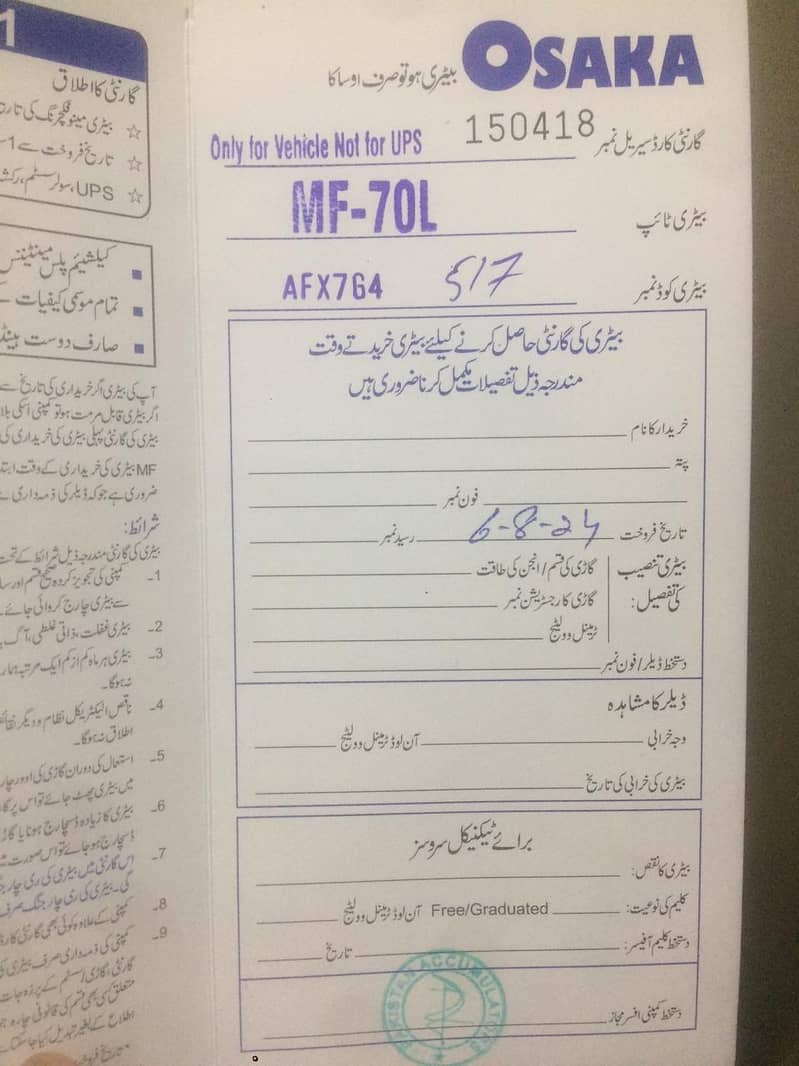 OSAKA
بیٹری ہو تو صرف اوساکا
گارنٹی کارڈ سیریل نمبر 150418
Only for Vehicle Not for UPS
بیٹری ٹائپ MF-70L
بیٹری کوڈ نمبر AFX7G4 517
بیٹری کی گارنٹی حاصل کرنے کیلئے بیٹری خریدتے وقت
مندرجہ ذیل تفصیلات مکمل کرنا ضروری ہیں
خریدار کا نام
پتہ
فون نمبر
تاریخ فروخت 6-8-24 رسید نمبر
بیٹری تنصیب کی تفصیل:
گاڑی کی قسم/انجن کی طاقت
گاڑی کا رجسٹریشن نمبر
ٹرمینل وولٹیج
دستخط ڈیلر/فون نمبر
ڈیلر کا مشاہدہ
وجہ خرابی آن لوڈ ٹرمینل وولٹیج
بیٹری کی خرابی کی تاریخ
برائے ٹیکنیکل سروسز
بیٹری کا نقص:
کلیم کی نوعیت: Free/Graduated آن لوڈ ٹرمینل وولٹیج
دستخط کلیم آفیسر: تاریخ
دستخط کمپنی افسر مجاز
PAKISTAN ACCUMULATORS
1
گارنٹی کا اطلاق
☆ بیٹری مینوفیکچرنگ کی
☆ تاریخ فروخت سے 1
☆ UPS، سولر سسٹم،
■ کیلشیم پلس مینٹیننس
■ تمام موسمی کیفیات
■ صارف دوست
آپ کی بیٹری اگر خریداری کی تاریخ سے
اگر بیٹری قابل مرمت ہو تو کمپنی اسکی
بیٹری کی گارنٹی پہلی بیٹری کی خریداری کی
MF بیٹری کی خریداری کے وقت
ضروری ہے جو کہ ڈیلر کی ذمہ داری
شرائط:
بیٹری کی گارنٹی مندرجہ ذیل شرائط کے تحت
1- کمپنی کی تجویز کردہ صحیح قسم اور
سے بیٹری چارج کروائی جائے۔
2- بیٹری غفلت، ذاتی غلطی، آگ
3- بیٹری ہر ماہ کم از کم ایک مرتبہ
نہ ہوگا۔
4- ناقص الیکٹریکل نظام و دیگر نقائص
اطلاق نہ ہوگا۔
5- استعمال کی دوران گاڑی کی اوور
میں بیٹری پھٹ جائے تو اس پر
6- بیٹری کا زیادہ ڈسچارج ہونا یا
ڈسچارج ہو جائے تو اس صورت
7- اس گارنٹی میں بیٹری کی ری
گی۔ بیٹری کی ری چارجنگ صرف
8- کمپنی کے علاوہ کوئی بھی گارنٹی
9- کمپنی کی ذمہ داری صرف بیٹری
گارنٹی، گاڑی/سسٹم کے پرزہ جات
متعلق کسی بھی قسم کی قانونی چارہ
اطلاع کے بغیر تبدیل کیا جا سکتا